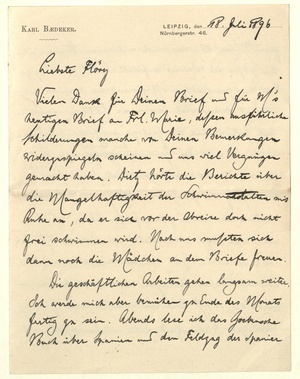 KARL BÆDEKER.
LEIPZIG, den 18. Juli 1896
Nürnbergerstr. 46.
Liebste Flory
Vielen Dank für Deinen Brief und für M's
heutigen Brief an Frl. Marie, dessen ausführliche
Schilderungen manche von Deinen Bemerkungen
widerzuspiegeln scheinen und uns viel Vergnügen
gemacht haben. Dietz hörte die Berichte über
die Mangelhaftigkeit der mit
Ruhe an, da er sich vor der Abreise doch nicht
frei schwimmen wird. Nach uns mußten sich
dann noch die Mädchen an dem Briefe freuen.
Die geschäftlichen Arbeiten gehen langsam weiter.
Ich werde mich aber bemühen zu Ende des Monats
fertig zu sein. Abends lese ich das
Buch über Spanien und den Feldzug der Spanier